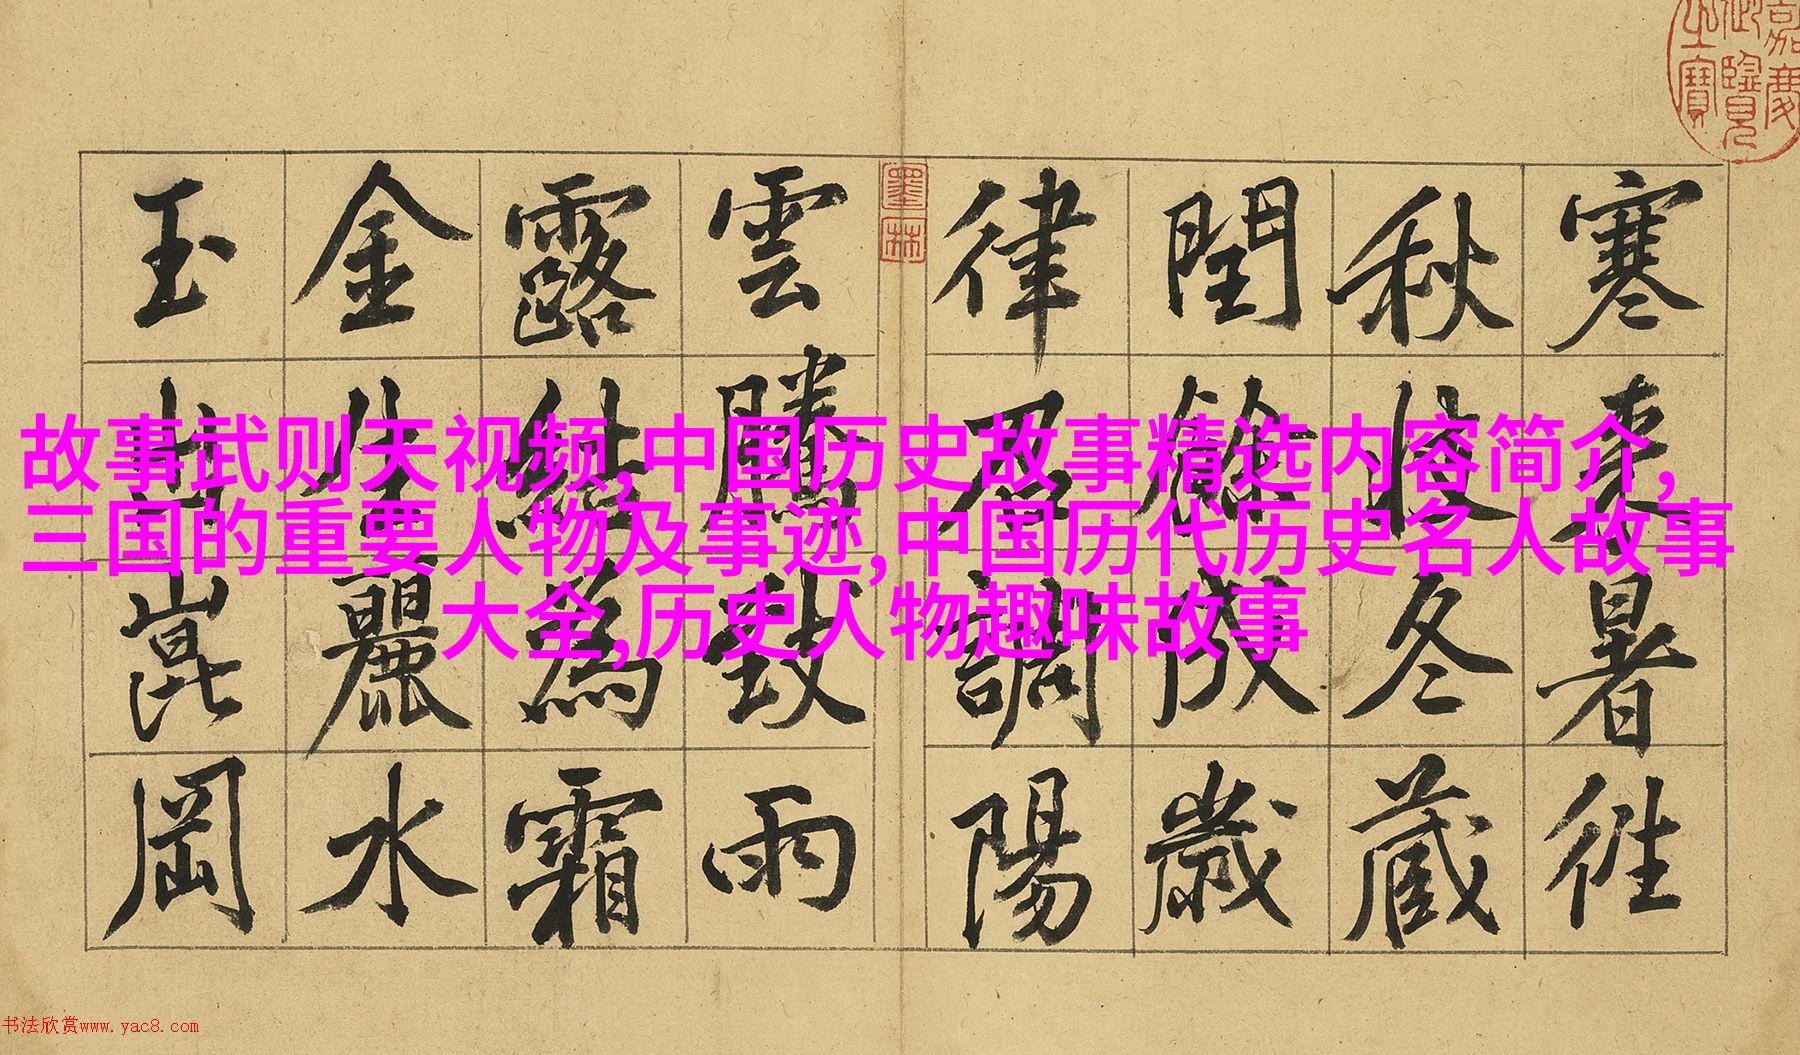 嘉慶
御覽
之寶
寒來暑徃
秋收冬藏
閏餘成歲
律召調陽
墨林
雲騰致雨
露結為霜
金生麗水
玉出崑岡
故事武则天视频,中国历史故事精选内容简介,
三国的重要人物及事迹,中国历代历史名人故事
大全,历史人物趣味故事
书法欣赏www.yac8.com